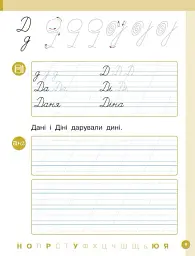 Д
д
д д д Д Д Д
Да Да Ді Ді
Даня Діна
Дані і Діні дарували дині.
Н О П Р С Т У Ф Х Ц Ч Ш Щ Ь Ю Я